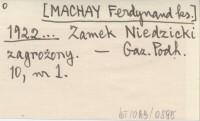 0
[MACHAY Ferdynand ks.]
1922... Zamek Niedzicki
zagrożony. — Gaz. Podh.
10, nr 1.